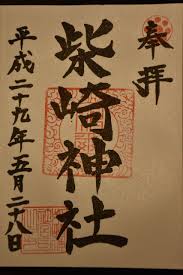 奉拝
柴崎神社
平成二十九年五月二十八日